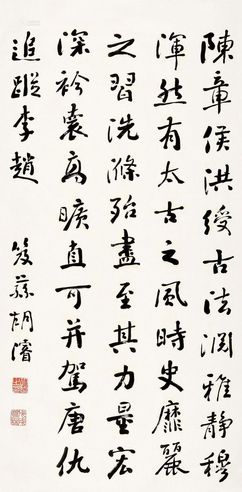 陳章侯洪綬古法淵雅靜穆
渾然有太古之風時史靡麗
之習洗滌殆盡至其力量宏
深衿裹高曠直可并駕唐仇
追蹤李趙
笈蘇胡濬